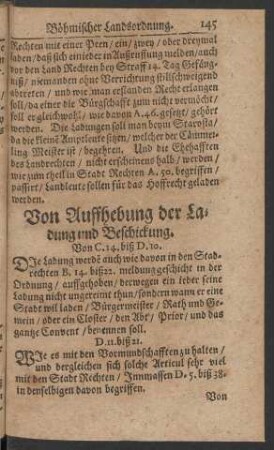 Böhmischer Landsordnung. 145
Rechten mit einer Peen / ein / zwey / oder dreymal
laden / daß sich einieder in Außreissung melden / auch
vor den Land Rechten bey Straff 14. Tag Gefäng-
niß / niemanden ohne Verrichtung stillschweigend
abtreten / und wie man erstanden Recht erlangen
soll / da einer die Bürgschafft zum nicht vermöcht /
soll er gleichwohl / wie davon A. 46. gesetzt / gehört
werden. Die Ladungen soll man beym Starosta /
da die kleine Amptleute sitzen / welcher der Cämmer-
ling Meister ist / begehren. Und die Ehehafften
des Landrechten / nicht erscheinens halb / werden /
wie zum theil in Stadt Rechten A. 50. begriffen /
passirt / Landleute sollen für das Hoffrecht geladen
werden.
Von Auffhebung der La-
dung und Beschickung.
Von C. 14. biß D. 10.
DIe Ladung werdē auch wie davon in den Stad-
rechten B. 14. biß 22. meldung geschicht in der
Ordnung / auffgehoben / derwegen ein ieder seine
Ladung nicht ungereimt thun / sondern wann er eine
Stadt wil laden / Bürgermeister / Rath und Ge-
mein / oder ein Closter / den Abt / Prior / und das
gantze Convent / benennen soll.
D. 11. biß 21.
WIe es mit den Vormundschafften zu halten /
und dergleichen sich solche Articul sehr viel
mit den Stadt Rechten / Innmassen D. 5. biß 38.
in denselbigen davon begriffen.
Von